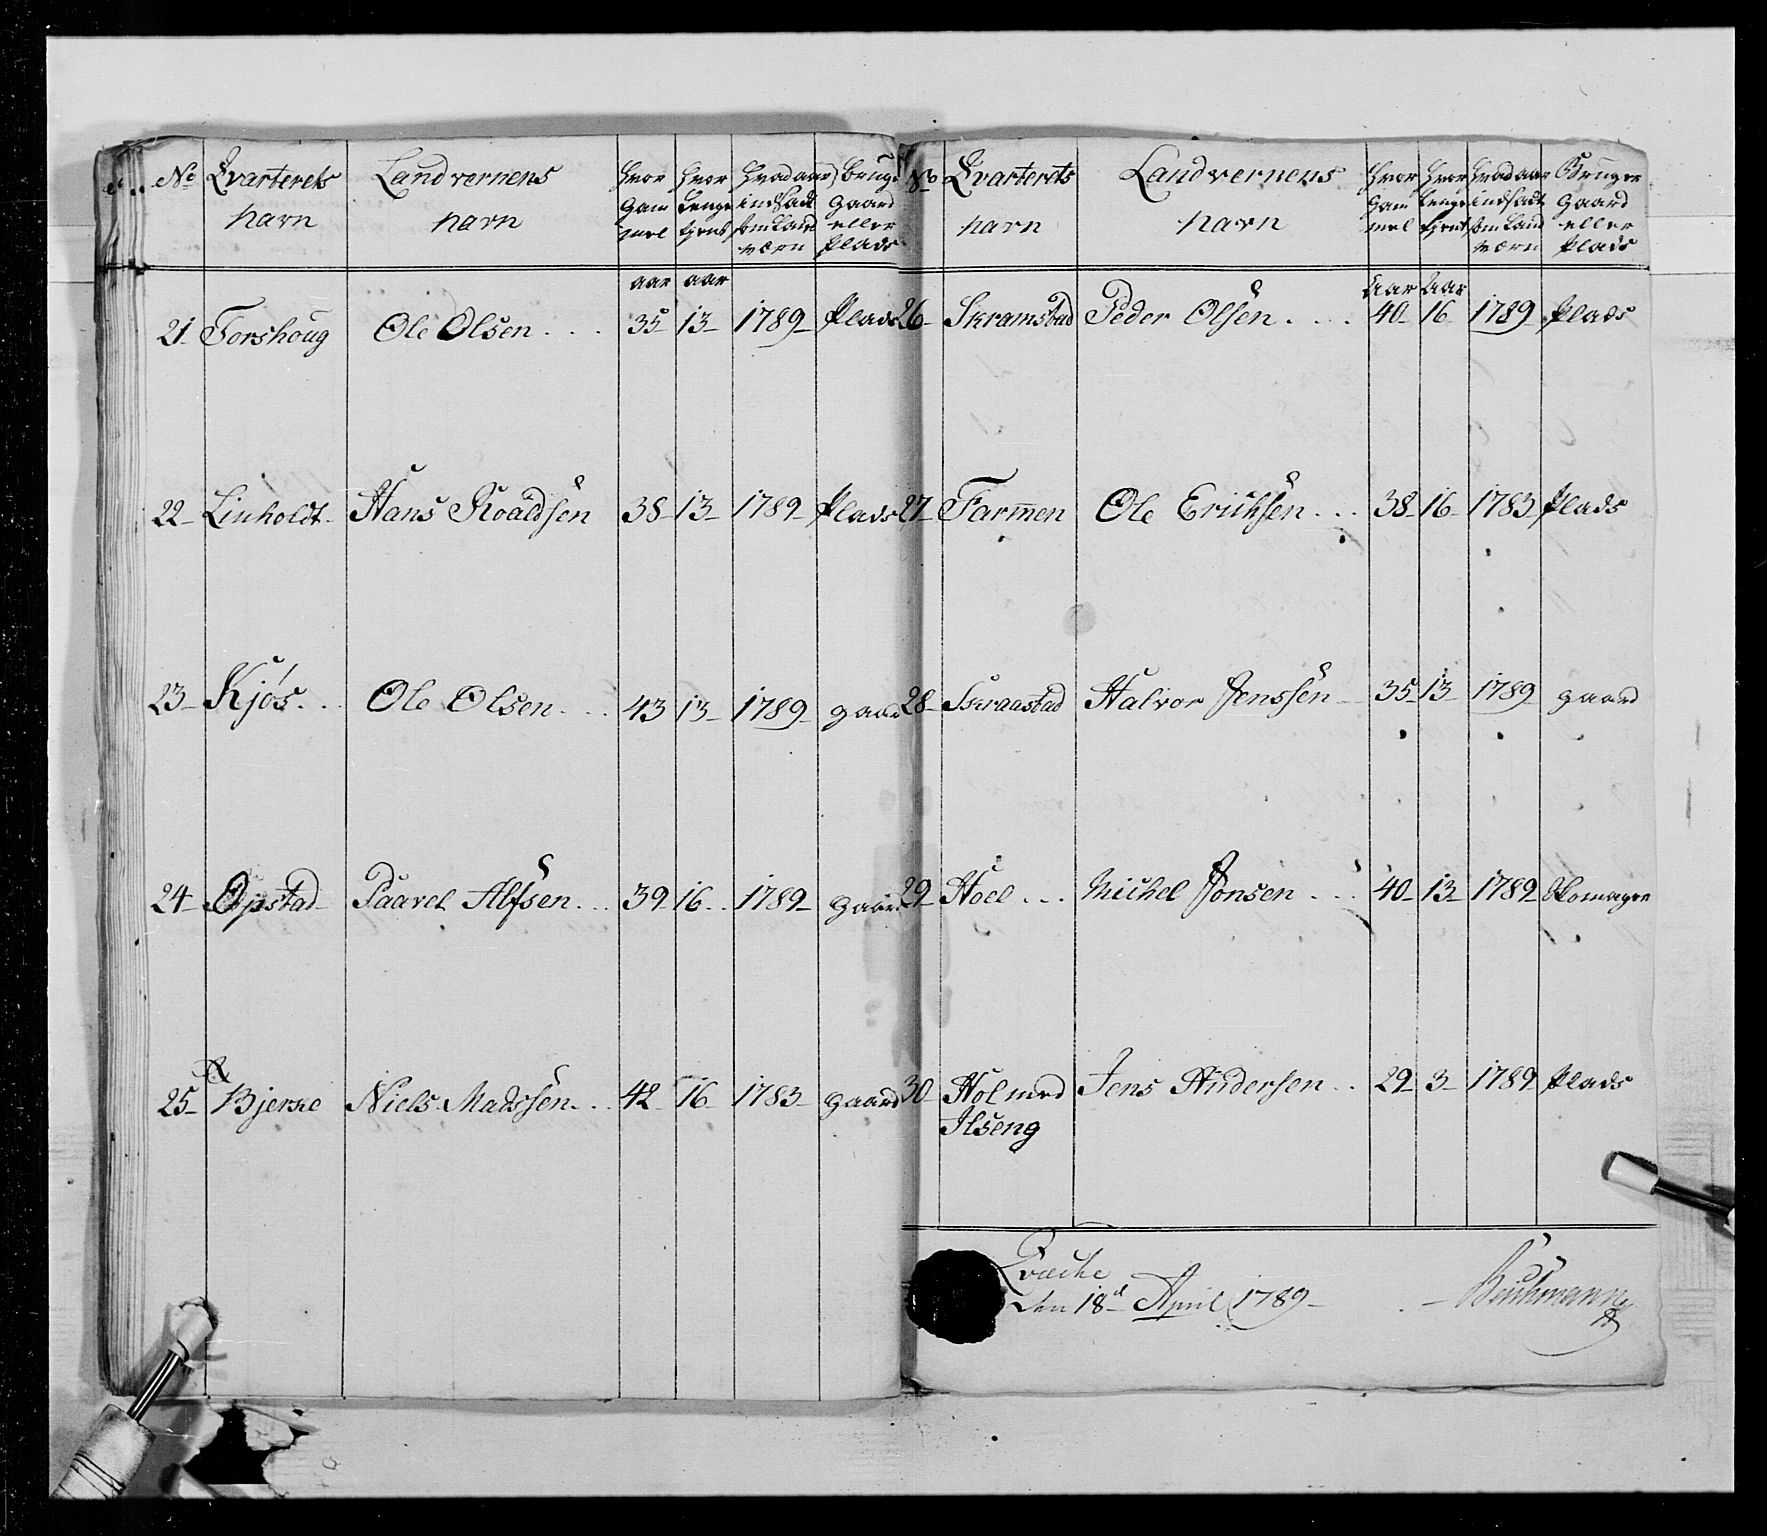 No Qvarterets Landvernens Hvor Hvor Hvad aar Bruge
navn navn Gam Lenge indsadt gaard
mel tjent som Land eller
værn Plads
aar aar
21 Torshoug Ole Olsen . . . 35 13 1789 Plads
22 Linholdt Hans Roaldsen 38 13 1789 Plads
23 Kjøs . . . Ole Olsen . . . 43 13 1789 gaard
24 Opstad Paavel Alfsen . . . 39 16 1789 gaard
25 Bjerke Niels Madssen . . . 42 16 1783 gaard
No Qvarterets Landvernens Hvor Hvor Hvad aar Bruger
navn navn Gam Lenge indsadt Gaard
mel tjent som Land eller
værn Plads
Aar Aar
26 Skramstad Peder Olsen . . . 40 16 1789 Plads
27 Farmen Ole Erichsen . . . 38 16 1783 Plads
28 Skraastad Halvor Jenssen 35 13 1789 gaard
29 Hoel . . . Michel Jonsen . . . 40 13 1789 Skomager
30 Hol med Jens Andersen . . 29 3 1789 Plads
Ilseng
Qvæche
Den 18d April 1789